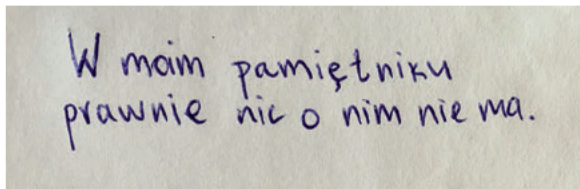 W moim pamiętniku
prawnie nic o nim nie ma.